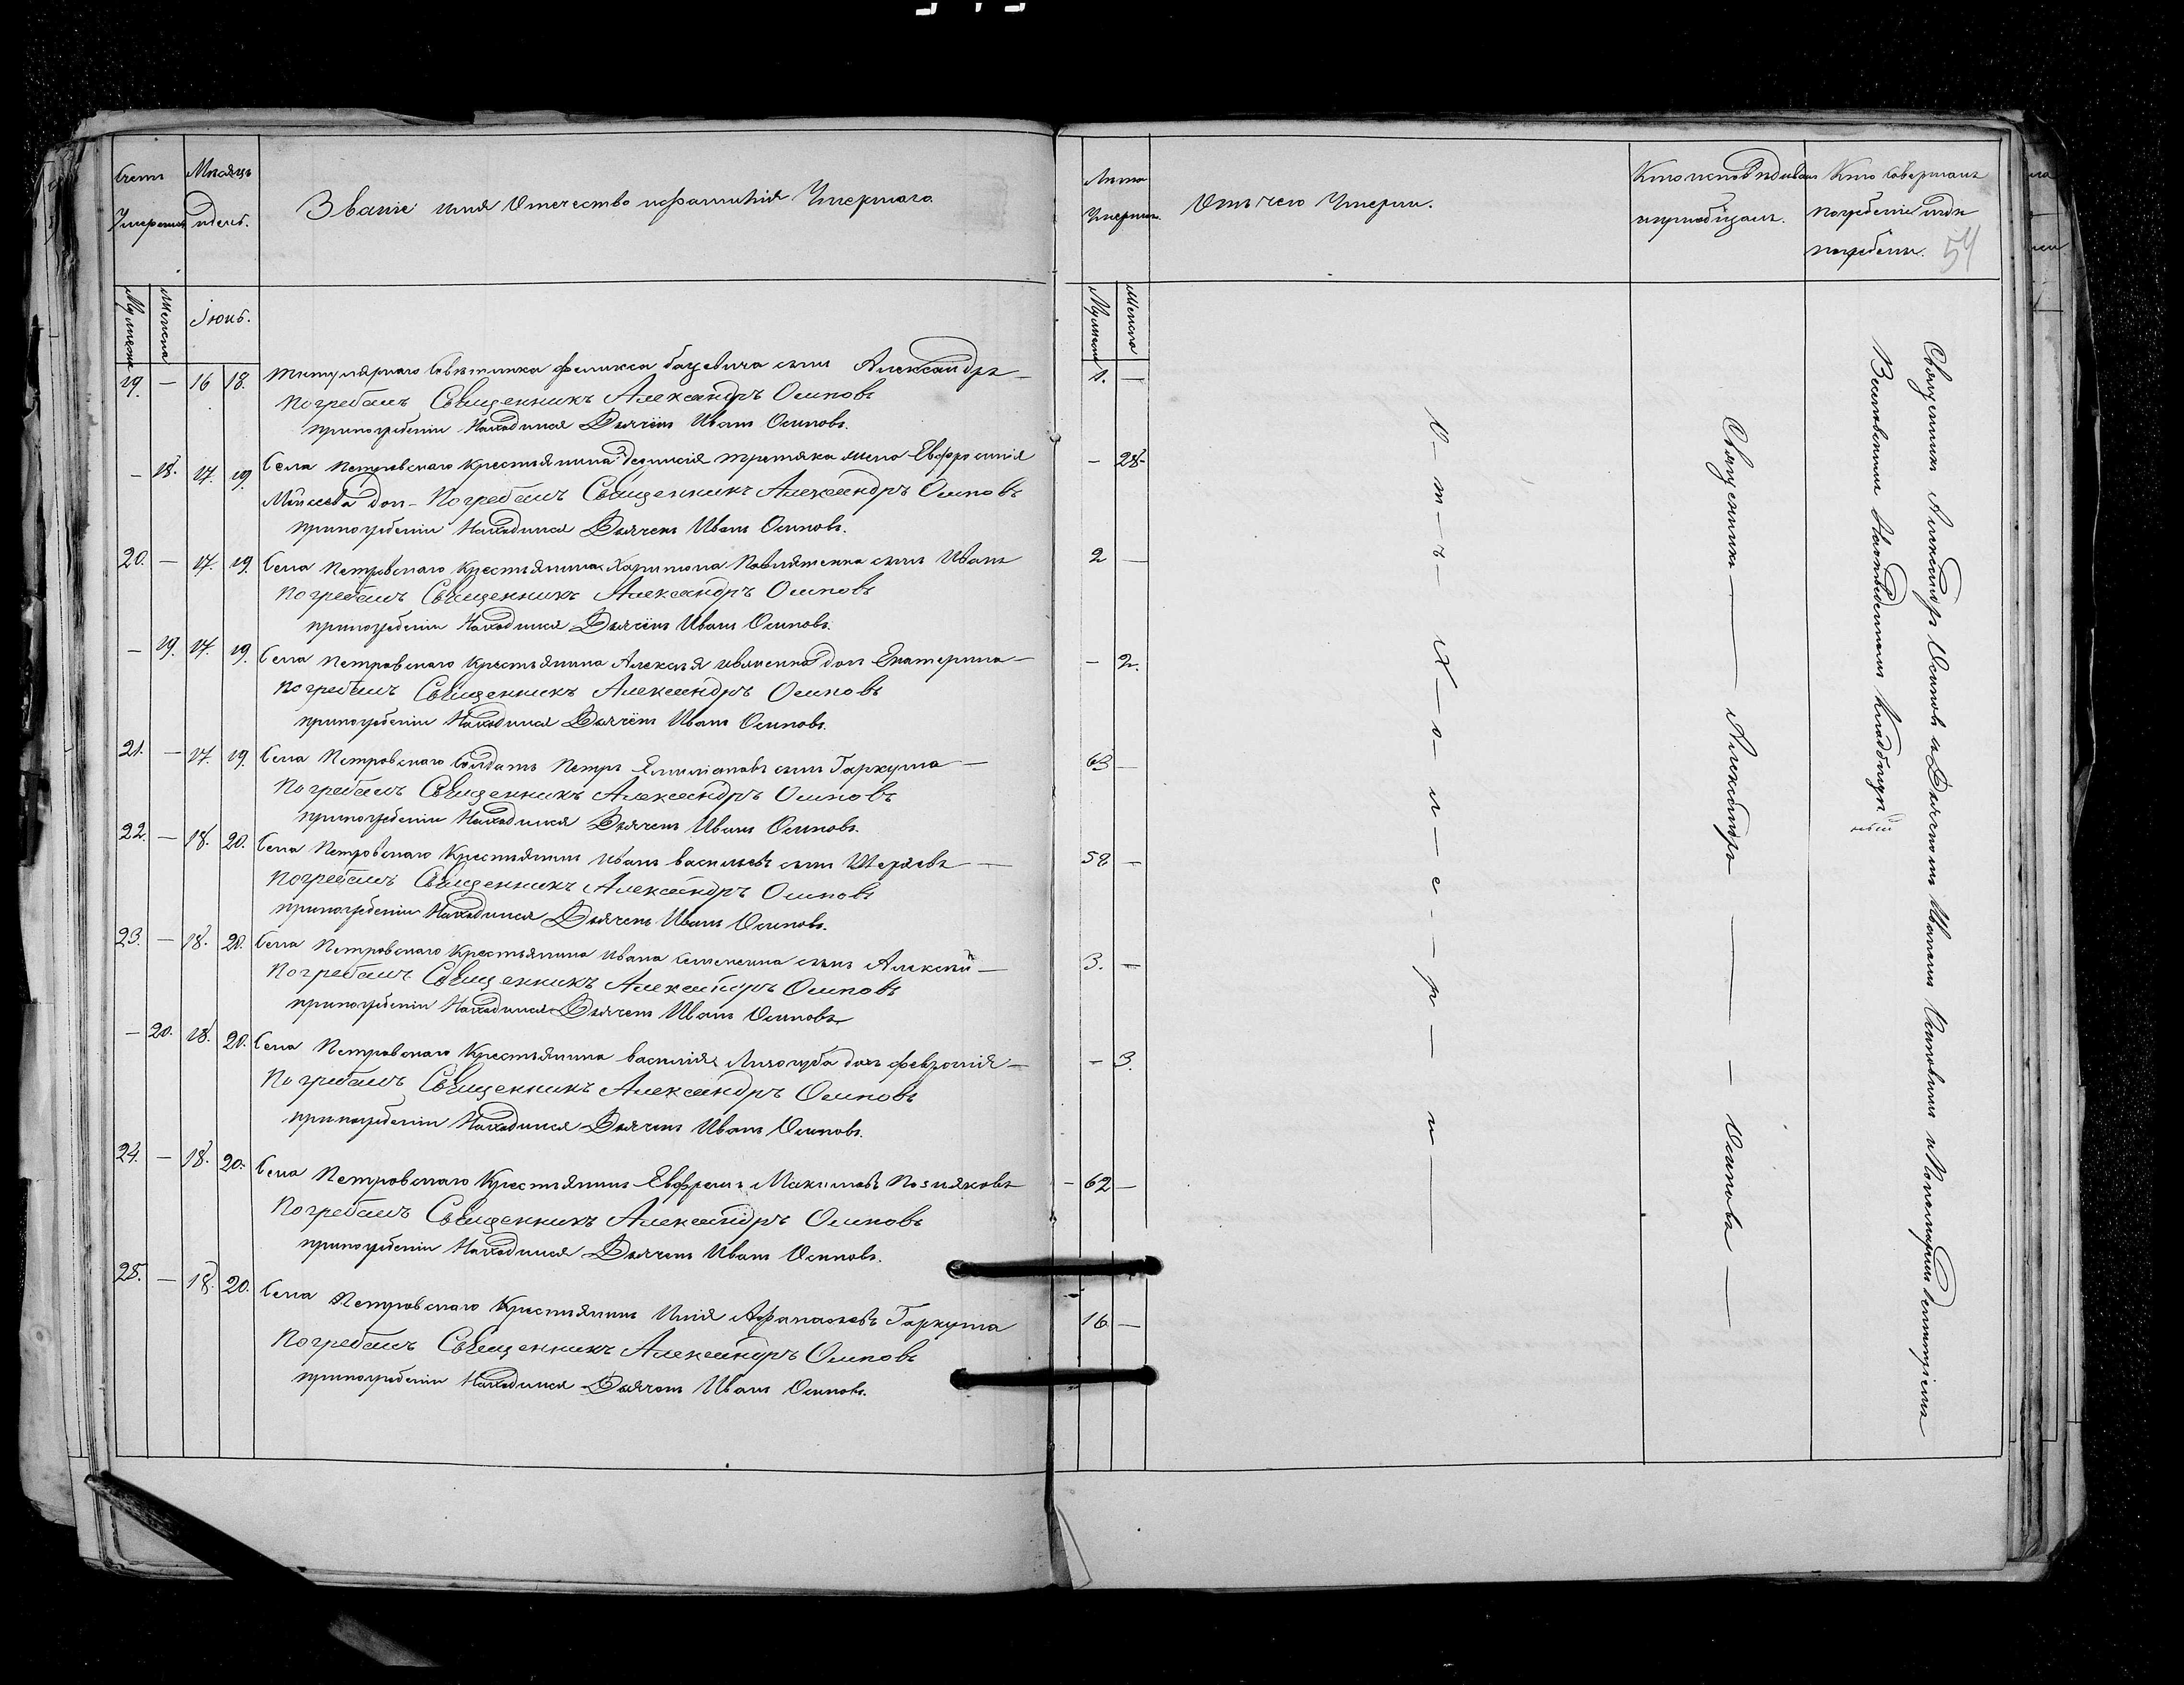 Счетъ
Умершихъ
Мѣсяцъ
и день.
Званіе имя Отечество и фамилія Умершаго.
Мужеска
Женска
Іюнь.
19. — 16 18. Титулярнаго Совѣтника Феликса Бацевича сынъ Александръ —
Погребалъ Священникъ Александръ Осиповъ
при погребеніи Находился Дьячекъ Иванъ Осиповъ.
— 18. 17. 19. Села Петровскаго Крестьянина Третяка жена Евфросинія
Моисеева доч. — Погребалъ Священникъ Александръ Осиповъ
при погребеніи Находился Дьячекъ Иванъ Осиповъ.
20. — 17. 19. Села Петровскаго Крестьянина Харитона сынъ Иванъ
Погребалъ Священникъ Александръ Осиповъ
при погребеніи Находился Дьячекъ Иванъ Осиповъ.
— 19. 17. 19. Села Петровскаго Крестьянина Алексѣя доч Екатерина —
Погребалъ Священникъ Александръ Осиповъ
при погребеніи Находился Дьячекъ Иванъ Осиповъ.
21. — 17. 19. Села Петровскаго Солдатъ Петръ Емиліановъ сынъ Гаркуша —
Погребалъ Священникъ Александръ Осиповъ
при погребеніи Находился Дьячекъ Иванъ Осиповъ.
22. — 18. 20. Села Петровскаго Крестьянинъ Иванъ Васильевъ сынъ —
Погребалъ Священникъ Александръ Осиповъ
при погребеніи Находился Дьячекъ Иванъ Осиповъ.
23. — 18. 20. Села Петровскаго Крестьянина Ивана сынъ Алексѣй —
Погребалъ Священникъ Александръ Осиповъ
при погребеніи Находился Дьячекъ Иванъ Осиповъ
— 20. 18. 20. Села Петровскаго Крестьянина Василія Лизогуба дочь Февронія —
Погребалъ Священникъ Александръ Осиповъ
при погребеніи Находился Дьячекъ Иванъ Осиповъ.
24. — 18. 20. Села Петровскаго Крестьянинъ Евфремъ Максимовъ Позняковъ
Погребалъ Священникъ Александръ Осиповъ
при погребеніи Находился Дьячекъ Иванъ Осиповъ.
25. — 18. 20. Села Петровскаго Крестьянинъ Илія Афанасьевъ Гаркуша
Погребалъ Священникъ Александръ Осиповъ
при погребеніи Находился Дьячекъ Иванъ Осиповъ.
Лѣта
Умершихъ.
Отъ чего Умерли.
Кто исповѣдывалъ
и приобщалъ.
Кто Совершалъ
погребеніе и гдѣ
погребены.
54
Мужеска
Женска
1. —
— 28
2 —
— 2.
63 —
58 —
3. —
— 3.
— 62 —
16 —
О — т — ъ — Х — о — л — е — р — и —
Священникъ — Александръ — — Осиповъ —
Священникъ Александръ Осиповъ и Дьячекъ Иваномъ Осиповымъ и Пономаремъ
На отведенномъ Кладбищѣ